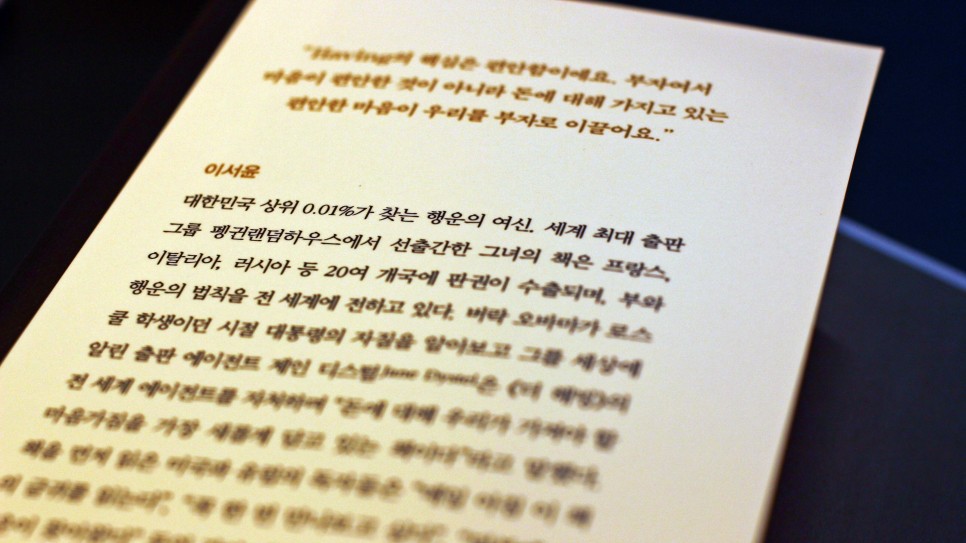 "Having의 핵심은 편안함이에요. 부자여서
마음이 편안한 것이 아니라 돈에 대해 가지고 있는
편안한 마음이 우리를 부자로 이끌어요."
이서윤
대한민국 상위 0.01%가 찾는 행운의 여신. 세계 최대 출판
그룹 펭귄랜덤하우스에서 선출간한 그녀의 책은 프랑스,
이탈리아, 러시아 등 20여 개국에 판권이 수출되며, 부와
행운의 법칙을 전 세계에 전하고 있다. 버락 오바마가 로스
쿨 학생이던 시절 대통령의 자질을 알아보고 그를 세상에
알린 출판 에이전트 제인 디스텔Jane Dystel은 《더 해빙》의
전 세계 에이전트를 자처하며 "돈에 대해 우리가 가져야 할
마음가짐을 가장 새롭게 담고 있는 책이다"라고 말했다.
책을 먼저 읽은 미국과 유럽의 독자들은 "매일 아침 이 책
의 글귀를 읽는다",